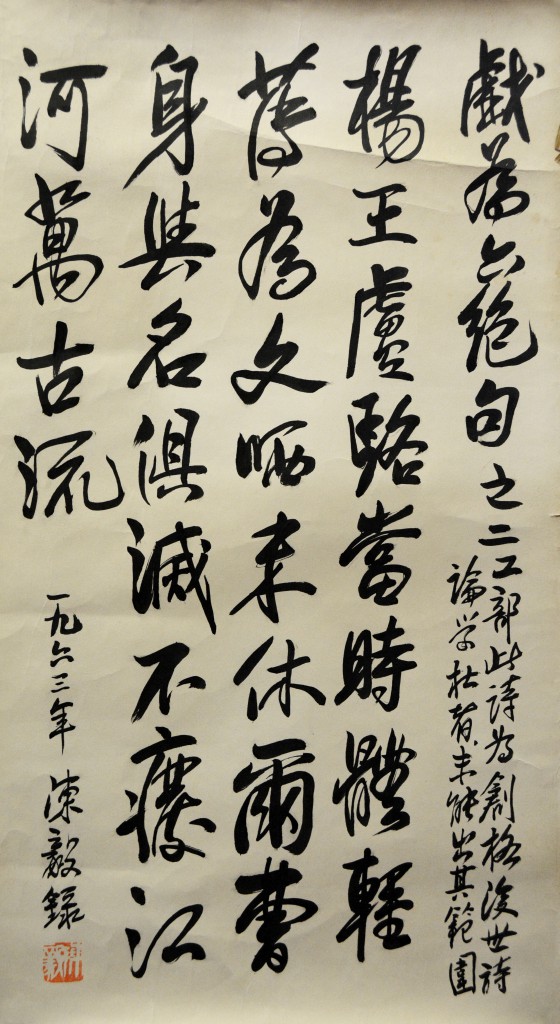 戲為六絕句之二
工部此詩為創格後世詩
論学杜者未能出其範圍
楊王盧駱當時體輕
薄為文哂未休爾曹
身與名俱滅不廢江
河萬古流
一九六三年 陳毅錄